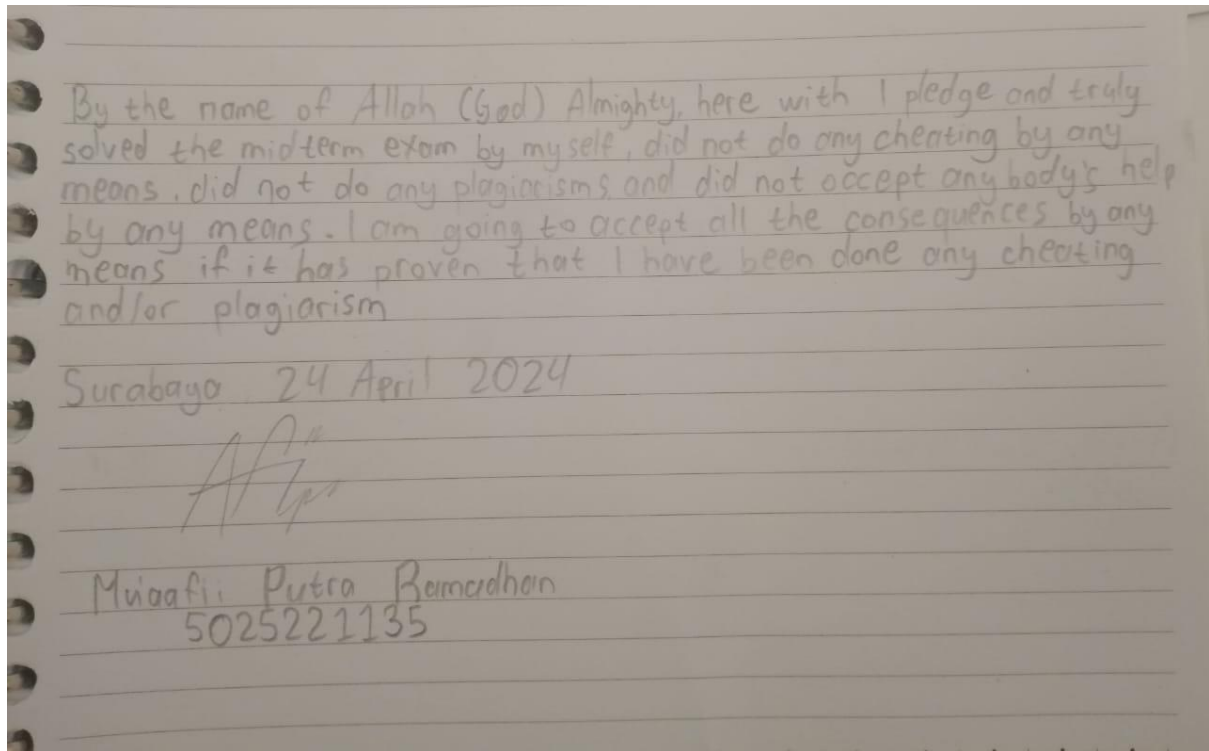 By the name of Allah (God) Almighty, here with I pledge and truly
solved the midterm exam by myself, did not do any cheating by any
means, did not do any plagiarisms, and did not accept anybody's help
by any means. I am going to accept all the consequences by any
means if it has proven that I have been done any cheating
and/or plagiarism
Surabaya 24 April 2024
Putra Ramadhan
5025221135